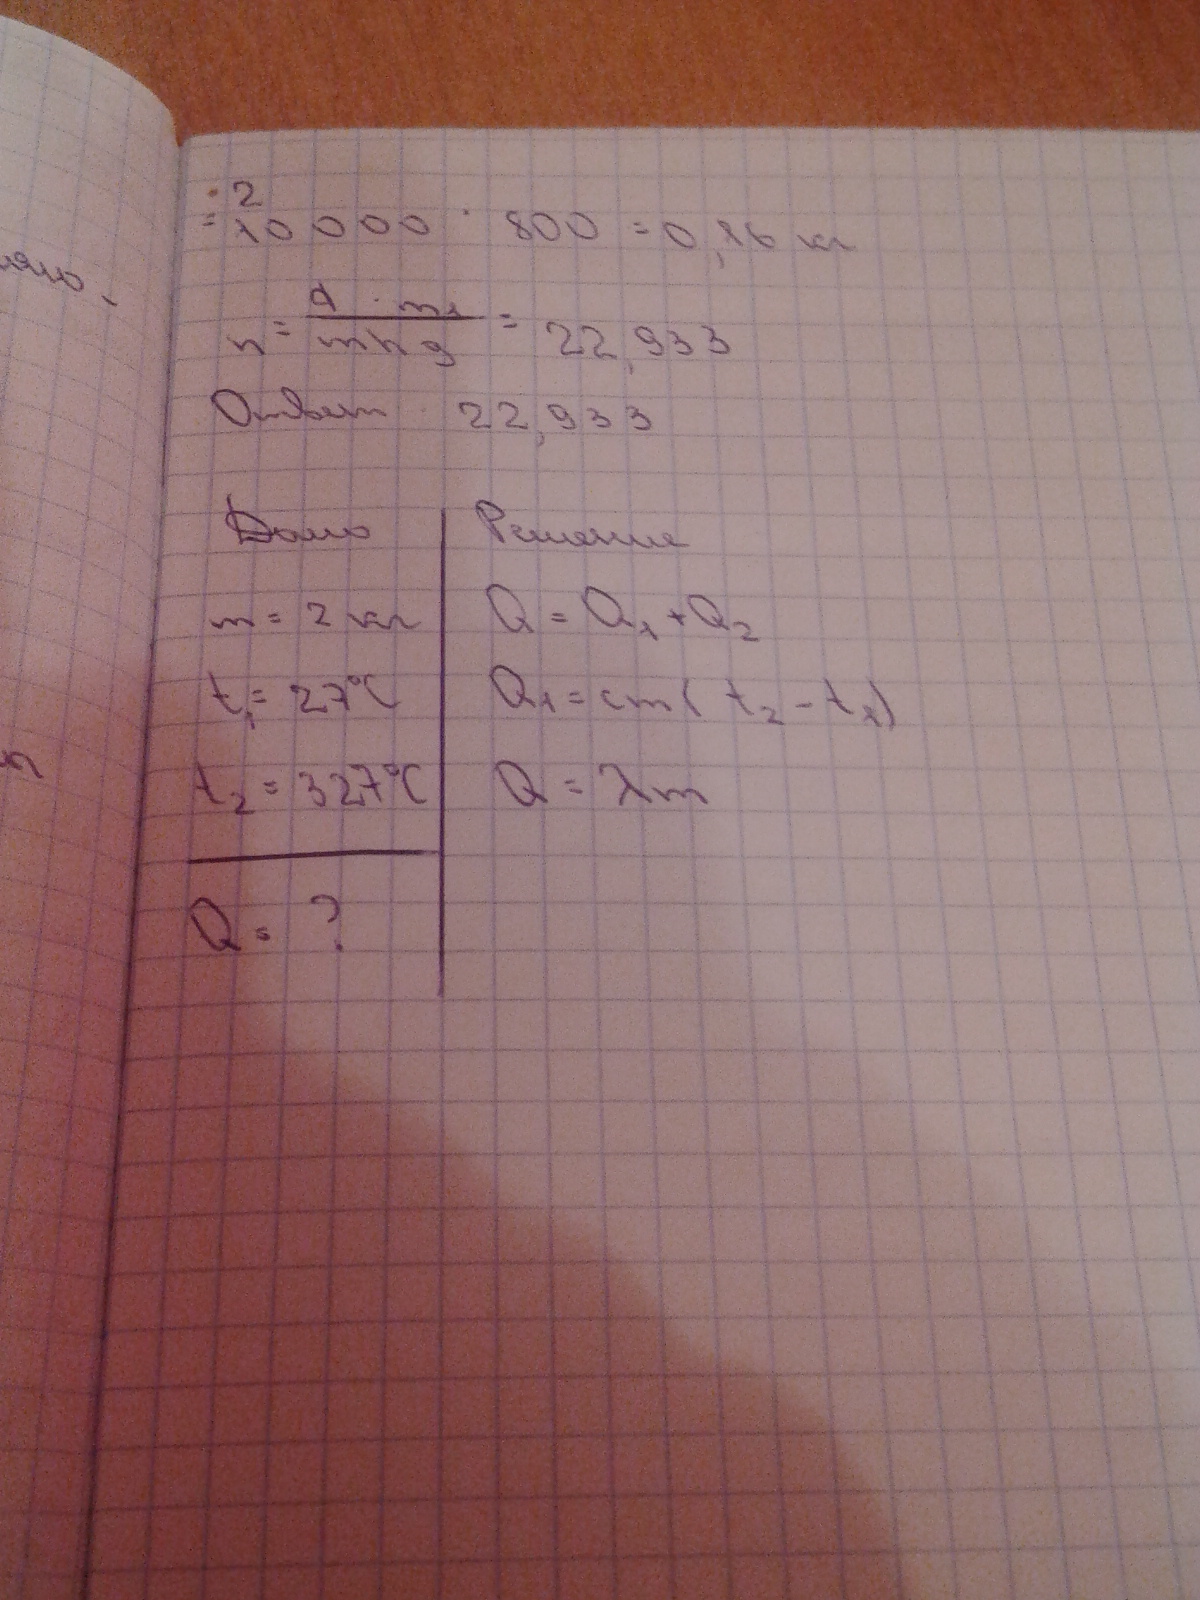 2
= 10 000 · 800 = 0,16 кг
n = = 22,933
Ответ 22,933
Дано
Решение
m = 2 кг
Q = Q₁ + Q₂
t₁ = 27°C
Q₁ = cm( t₂ - t₁)
t₂ = 327°C
Q = λm
Q = ?